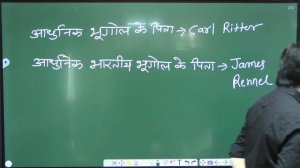 आधुनिक भूगोल के पिता → Carl Ritter
आधुनिक भारतीय भूगोल के पिता → James
Rennel